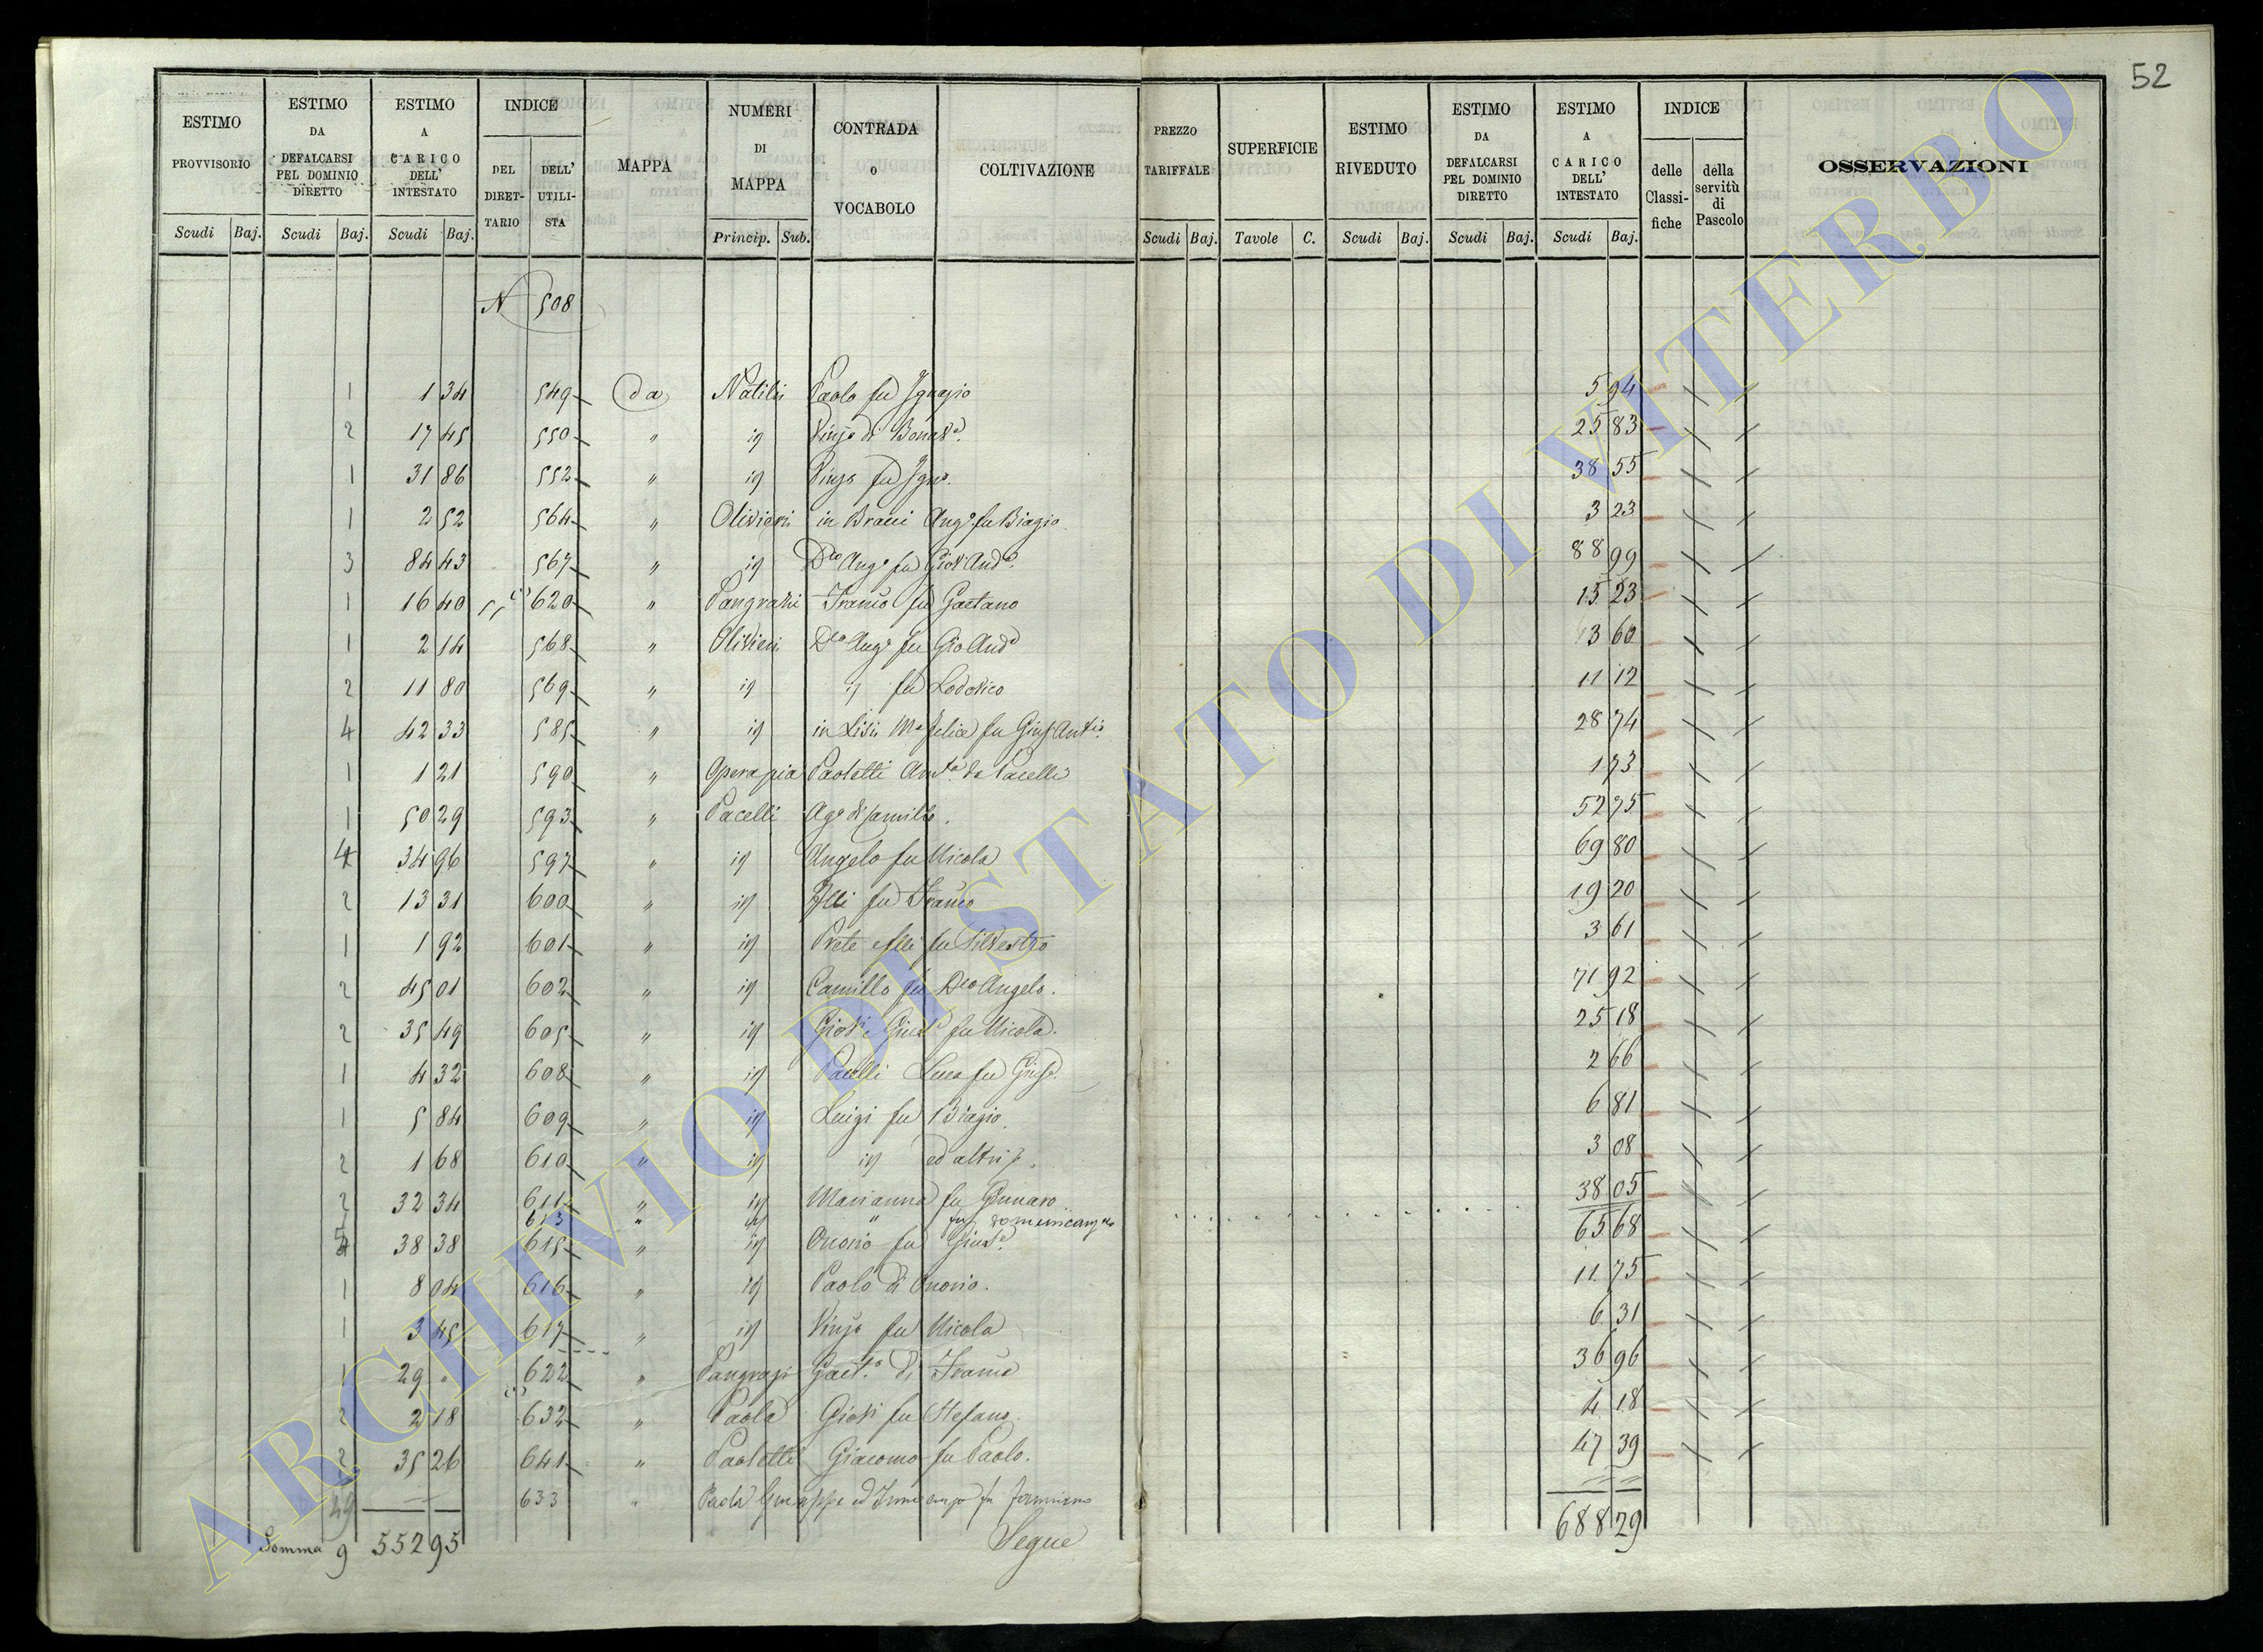 52
ESTIMO PROVVISORIO
ESTIMO DA DEFALCARSI PEL DOMINIO DIRETTO
ESTIMO A CARICO DELL' INTESTATO
INDICE
DEL DIRETTARIO
DELL' UTILISTA
MAPPA
NUMERI DI MAPPA
CONTRADA o VOCABOLO
COLTIVAZIONE
PREZZO TARIFFALE
SUPERFICIE
ESTIMO RIVEDUTO
ESTIMO DA DEFALCARSI PEL DOMINIO DIRETTO
ESTIMO A CARICO DELL' INTESTATO
INDICE
delle Classifiche
della servitù di Pascolo
OSSERVAZIONI
Scudi Baj. Scudi Baj. Scudi Baj. Princip. Sub. Scudi Baj. Tavole C. Scudi Baj. Scudi Baj. Scudi Baj.
N 508
1 1 34 549 da Natili Paolo fu Ignazio 5 94
2 17 45 550 " id Vinzo di 25 83
1 31 86 552 " id Vinzo fu Igno. 38 55
1 2 52 564 " Olivieri in Bracci Ango fu Biagio 3 23
3 84 43 567 " id Dco Ango fu Giov Anda. 88 99
1 16 40 620 " Pangrazi Franco fu Gaetano 15 23
1 2 14 568 " Olivieri Dco Ango fu Gio Anda 3 60
2 11 80 569 " id id fu Lodovico 11 12
4 42 33 585 " id in Lisii Ma Felice fu Gius Anto. 28 74
1 1 21 590 " Opera pia Paoletti Amta da Pacelli 1 73
1 50 29 593 " Pacelli Ago di Camillo. 52 75
4 34 96 597 " id Angelo fu Nicola 69 80
2 13 31 600 " id Flli fu Franco 19 20
1 1 92 601 " id Prete e flli fu Silvestro 3 61
2 45 01 602 " id Camillo fu Dco Angelo. 71 92
2 35 49 605 " id fu Nicola. 25 18
1 4 32 608 " id Pacelli Luca fu Giuse. 2 66
1 5 84 609 " id Luigi fu Biagio. 6 81
2 1 68 610 " id id ed altri 3 08
2 32 34 611 " id Marianna fu Gennaro 38 05
613 " id " fu Domenicangelo
5 38 38 615 " id Onorio fu Giuse. 65 68
1 8 04 616 " id Paolo di Onorio. 11 75
1 3 45 617 " id Vinzo fu Nicola 6 31
1 29 " 622 " Pangrazi Gaet.o di Franco 36 96
2 2 18 632 " Paola Giovi fu Stefano. 4 18
2 35 26 641 " Paoletti Giacomo fu Paolo. 47 39
49 633 " Paola Giuseppe ed
Somma 9 552 95 Segue 688 29
ARCHIVIO DI STATO DI VITERBO